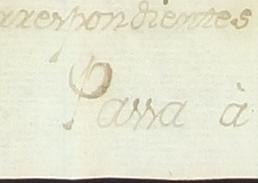 correspondientes
Passa à